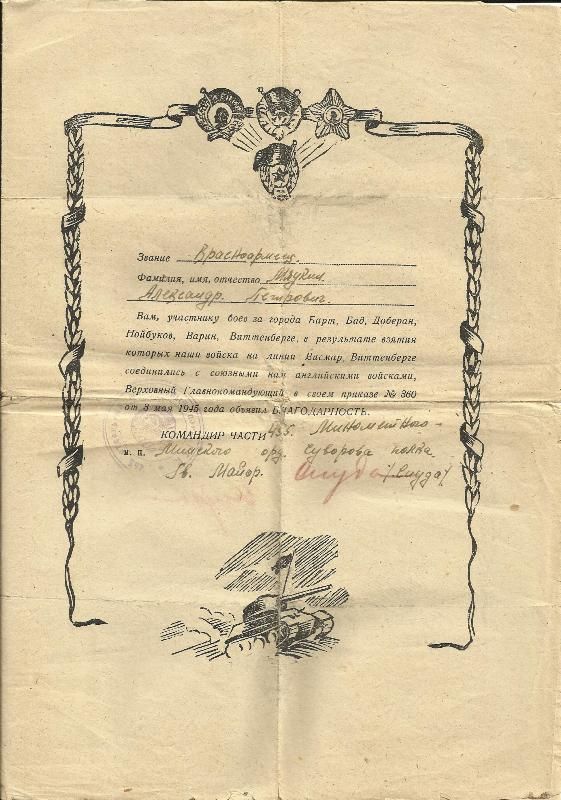 Звание Красноармеец.
Фамилия, имя, отчество
Александр Петрович.
Вам, участнику боев за города Барт, Бад, Доберан,
Нойбуков, Варин, Виттенберге, в результате взятия
которых наши войска на линии Висмар, Виттенберге
соединились с союзными нам английскими войсками,
Верховный Главнокомандующий в своем приказе № 360
от 3 мая 1945 года объявил БЛАГОДАРНОСТЬ.
КОМАНДИР ЧАСТИ 455. Минометного
м. п. Минского орд. Суворова полка
Гв. Майор.